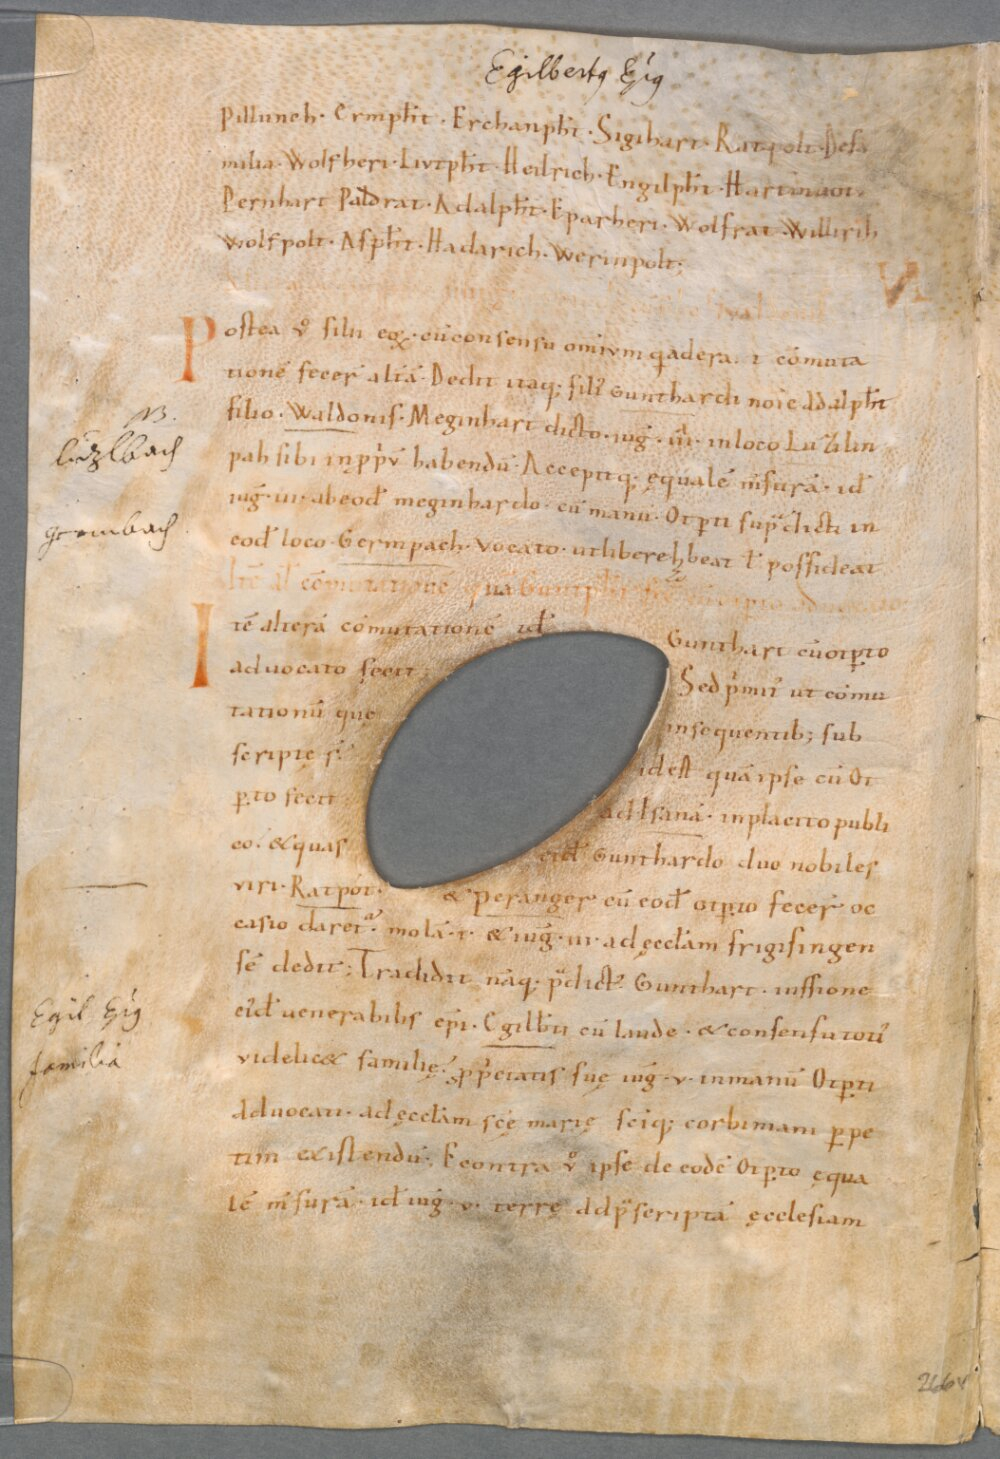 Egilbertꝰ Ep̄ig
Pilluneh· Ermp̄ht· Erchanp̄ht· Sigihart· Ratpolt· Defa
milia· Wolfheri· Livtp̄ht· Heilrich· Engilp̄ht· Hartmuot·
Pernhart Paldrat· Adalp̄ht· Eparheri· Wolfrat· Willirih
Wolfpolt· Asp̄ht· Hadarich· Werinpolt;
VI
Postea v̊ filii eoꝝ· cū consensu omium q̄adera· ī cōmuta
tionē fecer̄ aliā· Dedit itaq; filiꝰ Gunthardi noīe Adalp̄ht
filio· Waldonis· Meginhart dicto· iug̅· III· in loco Luzilin
pah sibi in p̄p̄v̄ habendū· Accepitq; ęqualē m̄surā· id̄
iug̅· III· ab eod̄ meginhardo· cū manū· Otp̱ti sup̄dicti in
eod̄ loco· Germpach· vocato· ut libere h̨beat t̄ possideat
N.
lützlbach
germbach
qua Guntp̄ht
Itē alterā cōmutationē id̄ Gunthart cū otp̱to
advocato fecit; Sed p̄mit̄ ut cōmu
tationū que insequentib; sub
scripte s̄· id est quā ipse cū Ot
p̱to fecit ad Isanā· in placito publi
co· & quas eid̄ Gunthardo duo nobiles
viri· Ratpot· & Peranger cū eod̄ otp̱to fecer̄ oc
casio daret̄· molā· I· & iug̅· III· ad ęccl̄am frigisingen
sē dedit; Tradidit nāq; p̄dict̄ Gunthart· iussione
eid̄ venerabilis ep̄i· Egilb̄ti cū laude· & consensu toti̅
videlic& familię· p̄p̄etatis suę iug̅· V· in manū Otp̱ti
Advocati· ad ęccl̄am scę marię scīq; corbiniani p̱pe
tim existendū; Econtra v̊ ipse de eodē Otp̱to ęqua
lē m̄surā· id̄ iug̅· V· terrę ad p̄scriptā ęcclesiam
Egil Ep̄ig
familia
266v